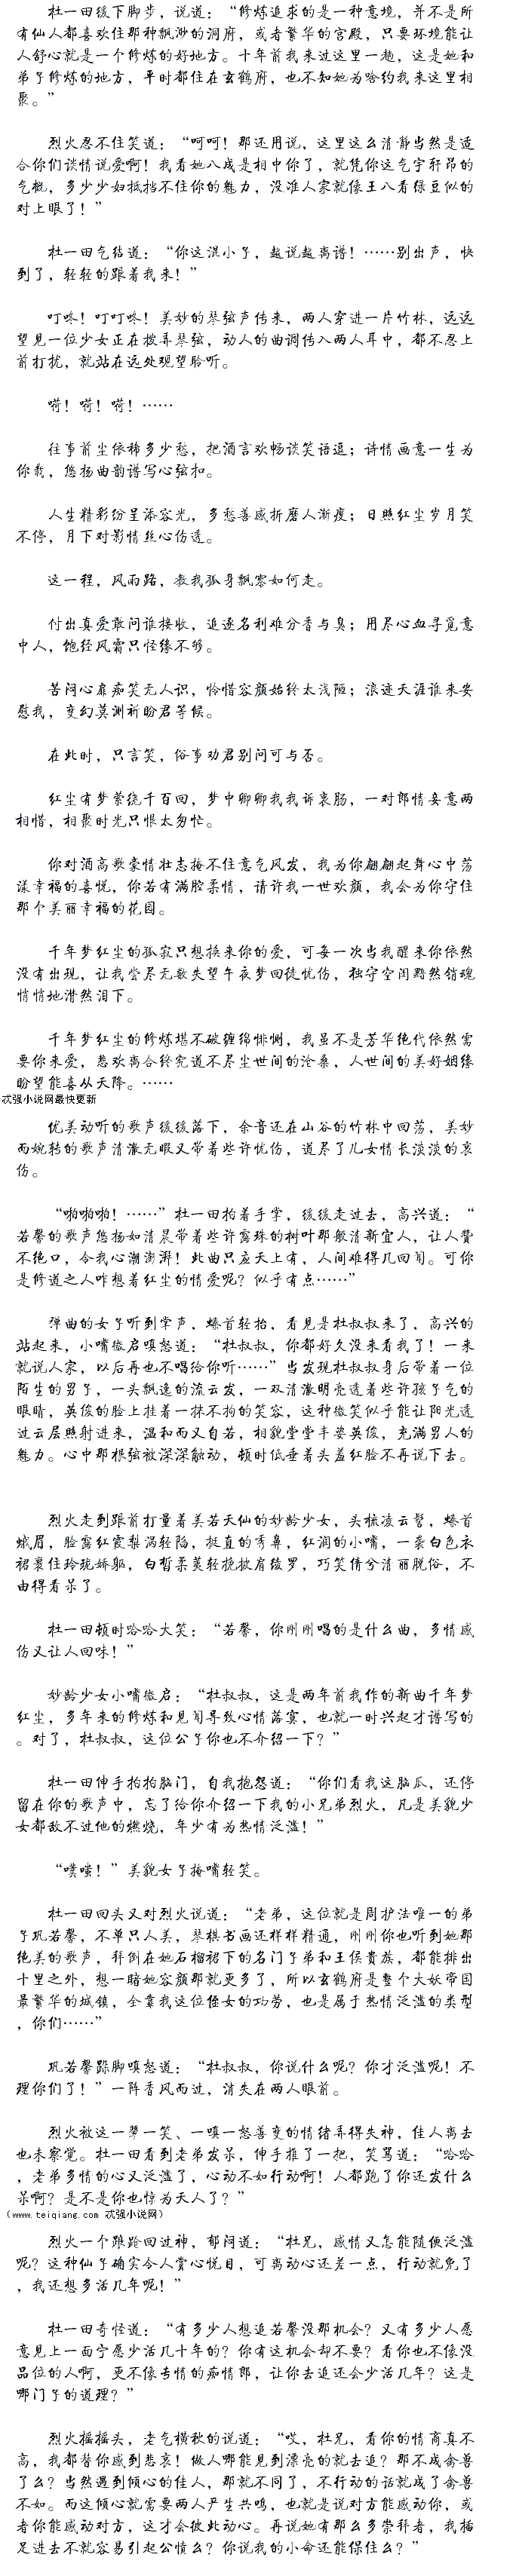 杜一田缓下脚步，说道：“修炼追求的是一种意境，并不是所
有仙人都喜欢住那种飘渺的洞府，或者繁华的宫殿，只要环境能让
人舒心就是一个修炼的好地方。十年前我来过这里一趟，这是她和
弟子修炼的地方，平时都住在玄鹤府，也不知她为啥约我来这里相
聚。”
烈火忍不住笑道：“呵呵！那还用说，这里这么清静当然是适
合你们谈情说爱啊！我看她八成是相中你了，就凭你这气宇轩昂的
气概，多少少妇抵挡不住你的魅力，没准人家就像王八看绿豆似的
对上眼了！”
杜一田气结道：“你这混小子，越说越离谱！……别出声，快
到了，轻轻的跟着我来！”
叮咚！叮叮咚！美妙的琴弦声传来，两人穿进一片竹林，远远
望见一位少女正在拨弄琴弦，动人的曲调传入两人耳中，都不忍上
前打扰，就站在远处观望聆听。
嗬！嗬！嗬！……
往事前尘依稀多少愁，把酒言欢畅谈笑语逗；诗情画意一生为
你载，悠扬曲韵谱写心弦扣。
人生精彩纷呈添容光，多愁善感折磨人渐瘦；日照红尘岁月笑
不停，月下对影情丝心伤透。
这一程，风雨路，教我孤身飘零如何走。
付出真爱敢问谁接收，追逐名利难分香与臭；用尽心血寻觅意
中人，饱经风霜只怪缘不够。
苦闷心扉痴笑无人识，怜惜容颜始终太浅陋；浪迹天涯谁来安
慰我，变幻莫测祈盼君等候。
在此时，只言笑，俗事劝君别问可与否。
红尘有梦萦绕千百回，梦中卿卿我我诉衷肠，一对郎情妾意两
相惜，相聚时光只恨太匆忙。
你对酒高歌豪情壮志掩不住意气风发，我为你翩翩起舞心中荡
漾幸福的喜悦，你若有满腔柔情，请许我一世欢颜，我会为你守住
那个美丽幸福的花园。
千年梦红尘的孤寂只想换来你的爱，可每一次当我醒来你依然
没有出现，让我尝尽无歌失望午夜梦回徒忧伤，独守空闺黯然销魂
悄悄地潸然泪下。
千年梦红尘的修炼堪不破缠绵悱恻，我虽不是芳华绝代依然需
要你来爱，悲欢离合终究道不尽尘世间的沧桑，人世间的美好姻缘
盼望能喜从天降。……
忒强小说网最快更新
优美动听的歌声缓缓落下，余音还在山谷的竹林中回荡，美妙
而婉转的歌声清澈无暇又带着些许忧伤，道尽了儿女情长淡淡的哀
伤。
“啪啪啪！……”杜一田拍着手掌，缓缓走过去，高兴道：“
若馨的歌声悠扬如清晨带着些许露珠的树叶那般清新宜人，让人赞
不绝口，令我心潮澎湃！此曲只应天上有，人间难得几回闻。可你
是修道之人咋想着红尘的情爱呢？似乎有点……”
弹曲的女子听到掌声，螓首轻抬，看见是杜叔叔来了，高兴的
站起来，小嘴微启嗔怒道：“杜叔叔，你都好久没来看我了！一来
就说人家，以后再也不唱给你听……”当发现杜叔叔身后带着一位
陌生的男子，一头飘逸的流云发，一双清澈明亮透着些许孩子气的
眼睛，英俊的脸上挂着一抹不拘的笑容，这种微笑似乎能让阳光透
过云层照射进来，温和而又自若，相貌堂堂丰姿英俊，充满男人的
魅力。心中那根弦被深深触动，顿时低垂着头羞红脸不再说下去。
烈火走到跟前打量着美若天仙的妙龄少女，头梳凌云髻，螓首
蛾眉，脸露红霞梨涡轻陷，挺直的秀鼻，红润的小嘴，一袭白色衣
裙裹住玲珑娇躯，白皙柔荑轻挽披肩绫罗，巧笑倩兮清丽脱俗，不
由得看呆了。
杜一田顿时哈哈大笑：“若馨，你刚刚唱的是什么曲，多情感
伤又让人回味！”
妙龄少女小嘴微启：“杜叔叔，这是两年前我作的新曲千年梦
红尘，多年来的修炼和见闻导致心情落寞，也就一时兴起才谱写的
。对了，杜叔叔，这位公子你也不介绍一下？”
杜一田伸手拍拍脑门，自我抱怨道：“你们看我这脑瓜，还停
留在你的歌声中，忘了给你介绍一下我的小兄弟烈火，凡是美貌少
女都敌不过他的燃烧，年少有为热情泛滥！”
“噗嗤！”美貌女子掩嘴轻笑。
杜一田回头又对烈火说道：“老弟，这位就是周护法唯一的弟
子巩若馨，不单只人美，琴棋书画还样样精通，刚刚你也听到她那
绝美的歌声，拜倒在她石榴裙下的名门子弟和王侯贵族，都能排出
十里之外，想一睹她容颜那就更多了，所以玄鹤府是整个大妖帝国
最繁华的城镇，全靠我这位侄女的功劳，也是属于热情泛滥的类型
，你们……”
巩若馨跺脚嗔怒道：“杜叔叔，你说什么呢？你才泛滥呢！不
理你们了！”一阵香风而过，消失在两人眼前。
烈火被这一颦一笑、一嗔一怒善变的情绪弄得失神，佳人离去
也未察觉。杜一田看到老弟发呆，伸手推了一把，笑骂道：“哈哈
，老弟多情的心又泛滥了，心动不如行动啊！人都跑了你还发什么
呆啊？是不是你也惊为天人了？”
（www.teiqiang.com 忒强小说网）
烈火一个踉跄回过神，郁闷道：“杜兄，感情又怎能随便泛滥
呢？这种仙子确实令人赏心悦目，可离动心还差一点，行动就免了
，我还想多活几年呢！”
杜一田奇怪道：“有多少人想追若馨没那机会？又有多少人愿
意见上一面宁愿少活几十年的？你有这机会却不要？看你也不像没
品位的人啊，更不像专情的痴情郎，让你去追还会少活几年？这是
哪门子的道理？”
烈火摇摇头，老气横秋的说道：“哎，杜兄，看你的情商真不
高，我都替你感到悲哀！做人哪能见到漂亮的就去追？那不成禽兽
了么？当然遇到倾心的佳人，那就不同了，不行动的话就成了禽兽
不如。而这倾心就需要两人产生共鸣，也就是说对方能感动你，或
者你能感动对方，这才会彼此动心。再说她有那么多崇拜者，我插
足进去不就容易引起公愤么？你说我的小命还能保住么？”